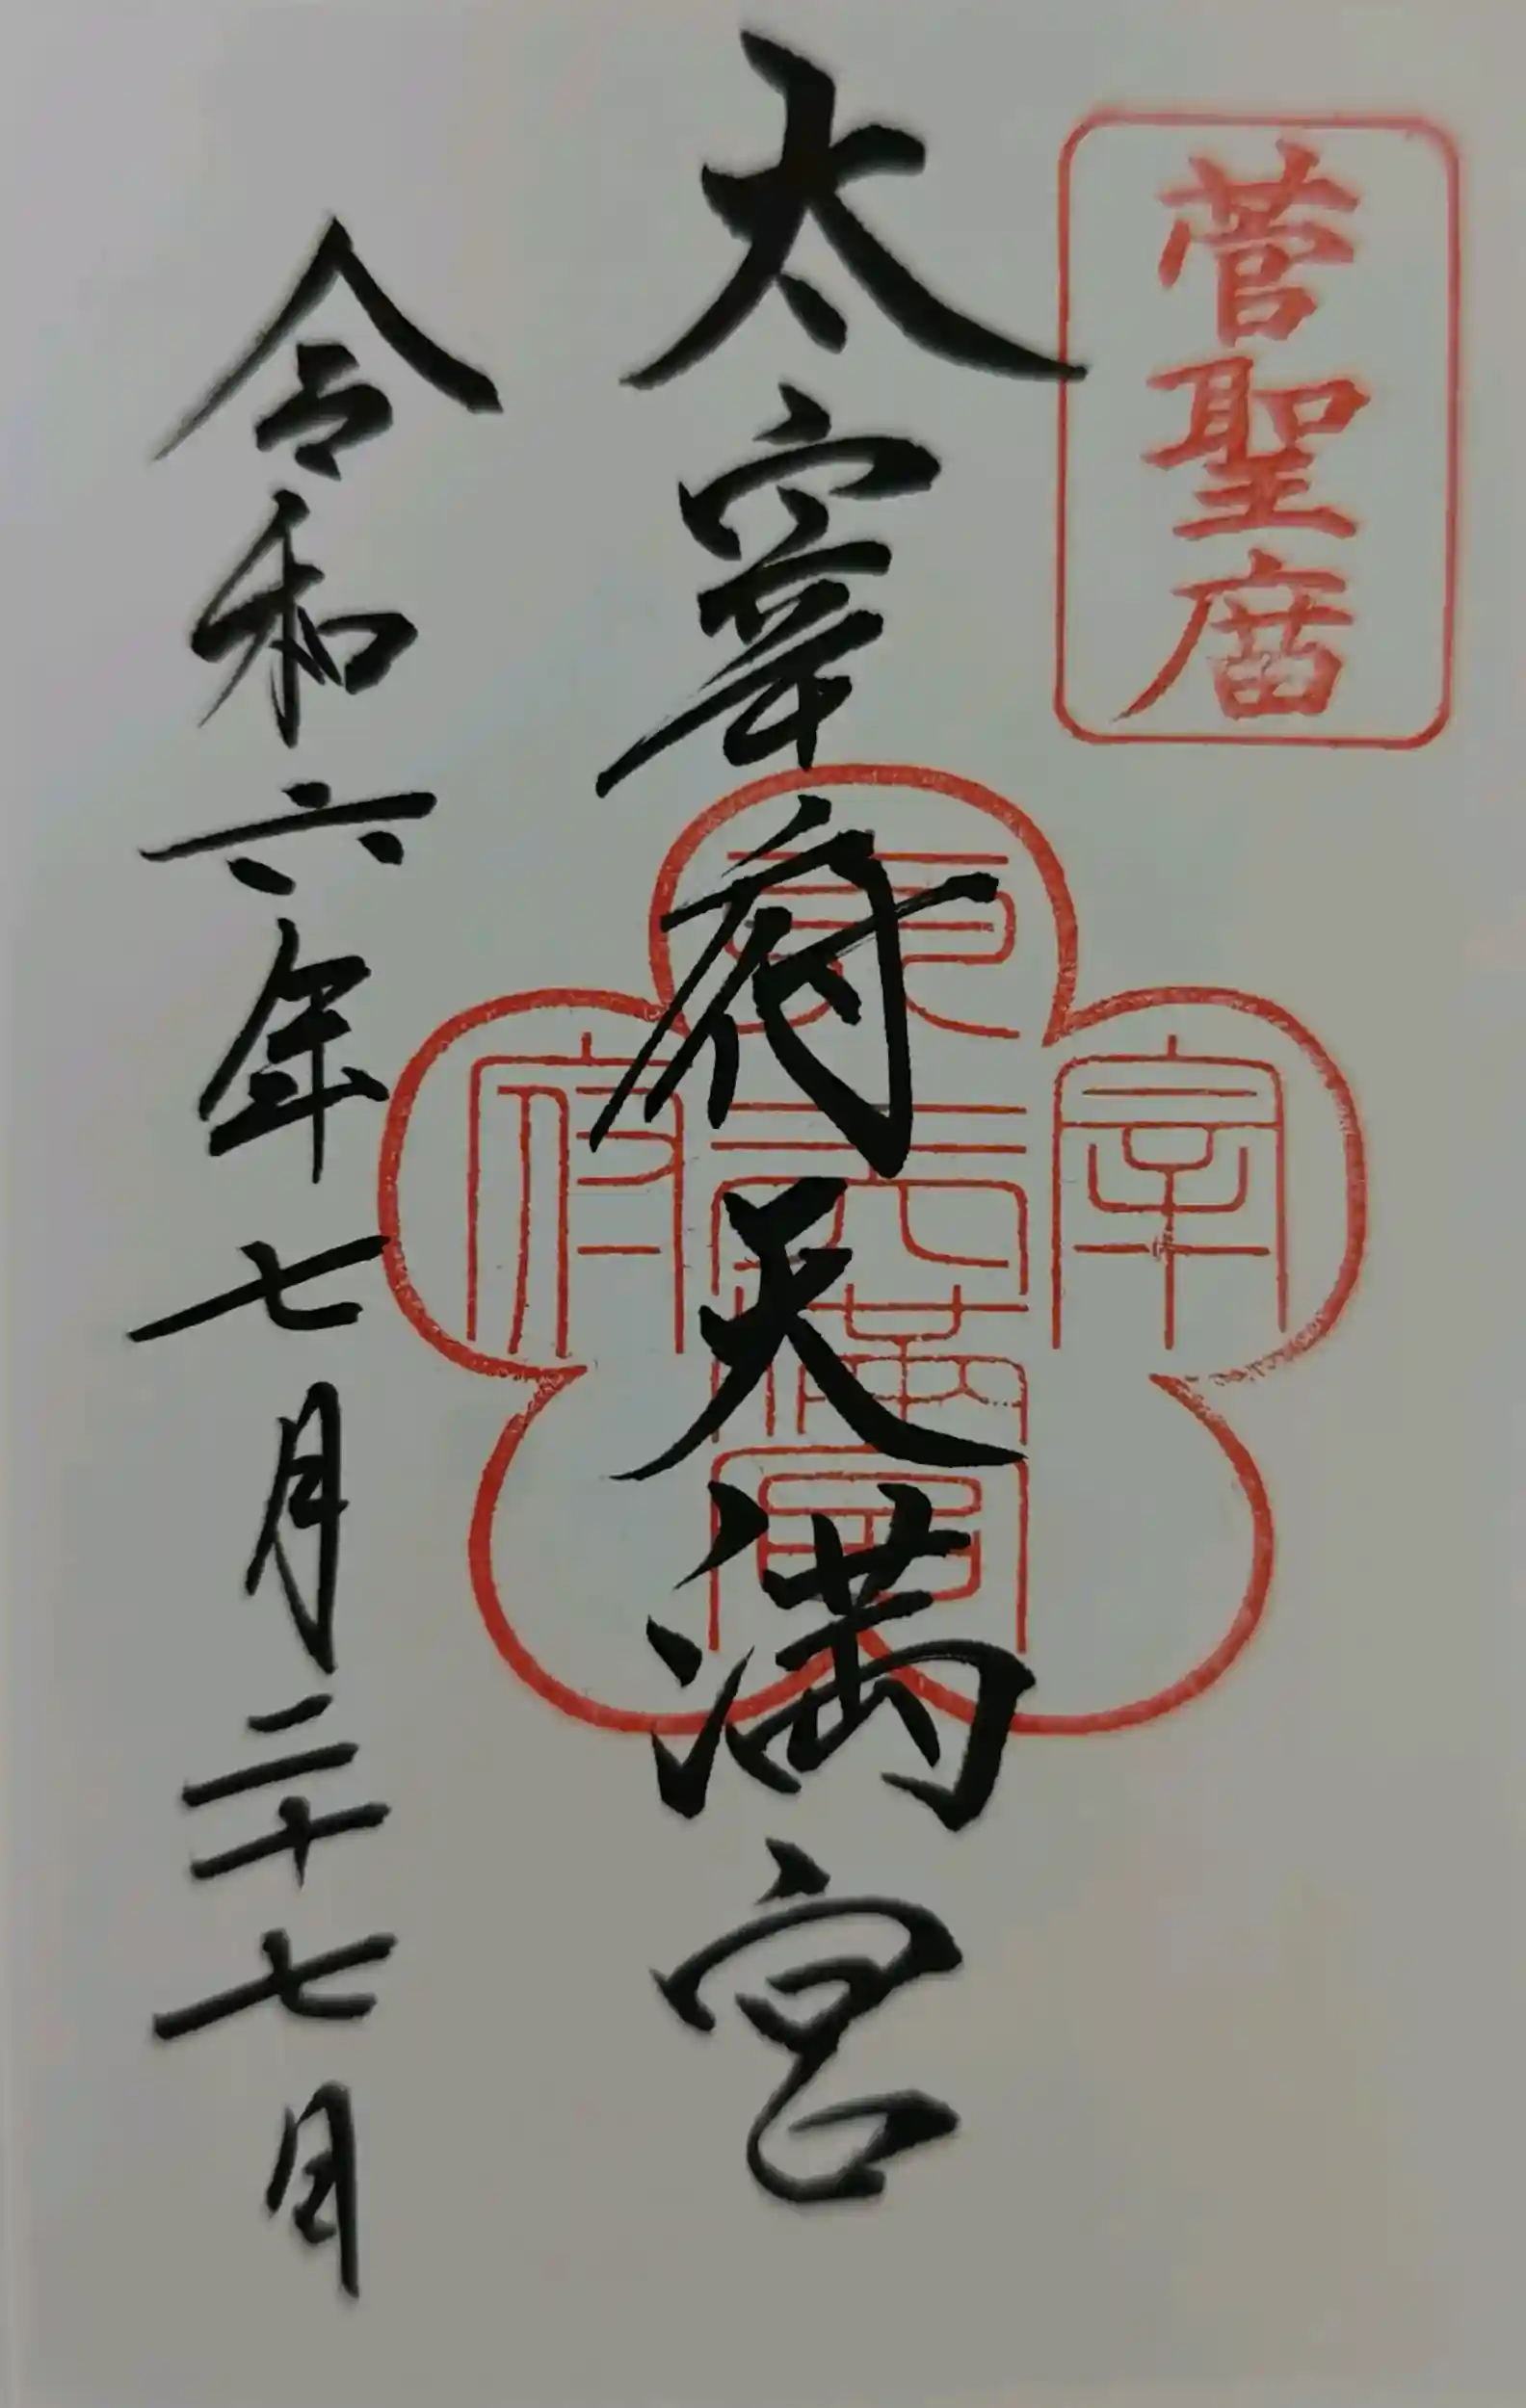 菅聖庿
太宰府天満宮
宰府
天満宮
令和六年七月二十七日